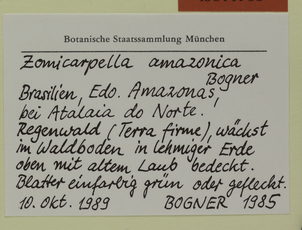 Botanische Staatssammlung München
Zomicarpella amazonica
Bogner
Brasilien, Edo. Amazonas,
bei Atalaia do Norte.
Regenwald (Terra firme), wächst
im Waldboden in lehmiger Erde
oben mit altem Laub bedeckt.
Blätter einfarbig grün oder gefleckt.
10. Okt. 1989 BOGNER 1985